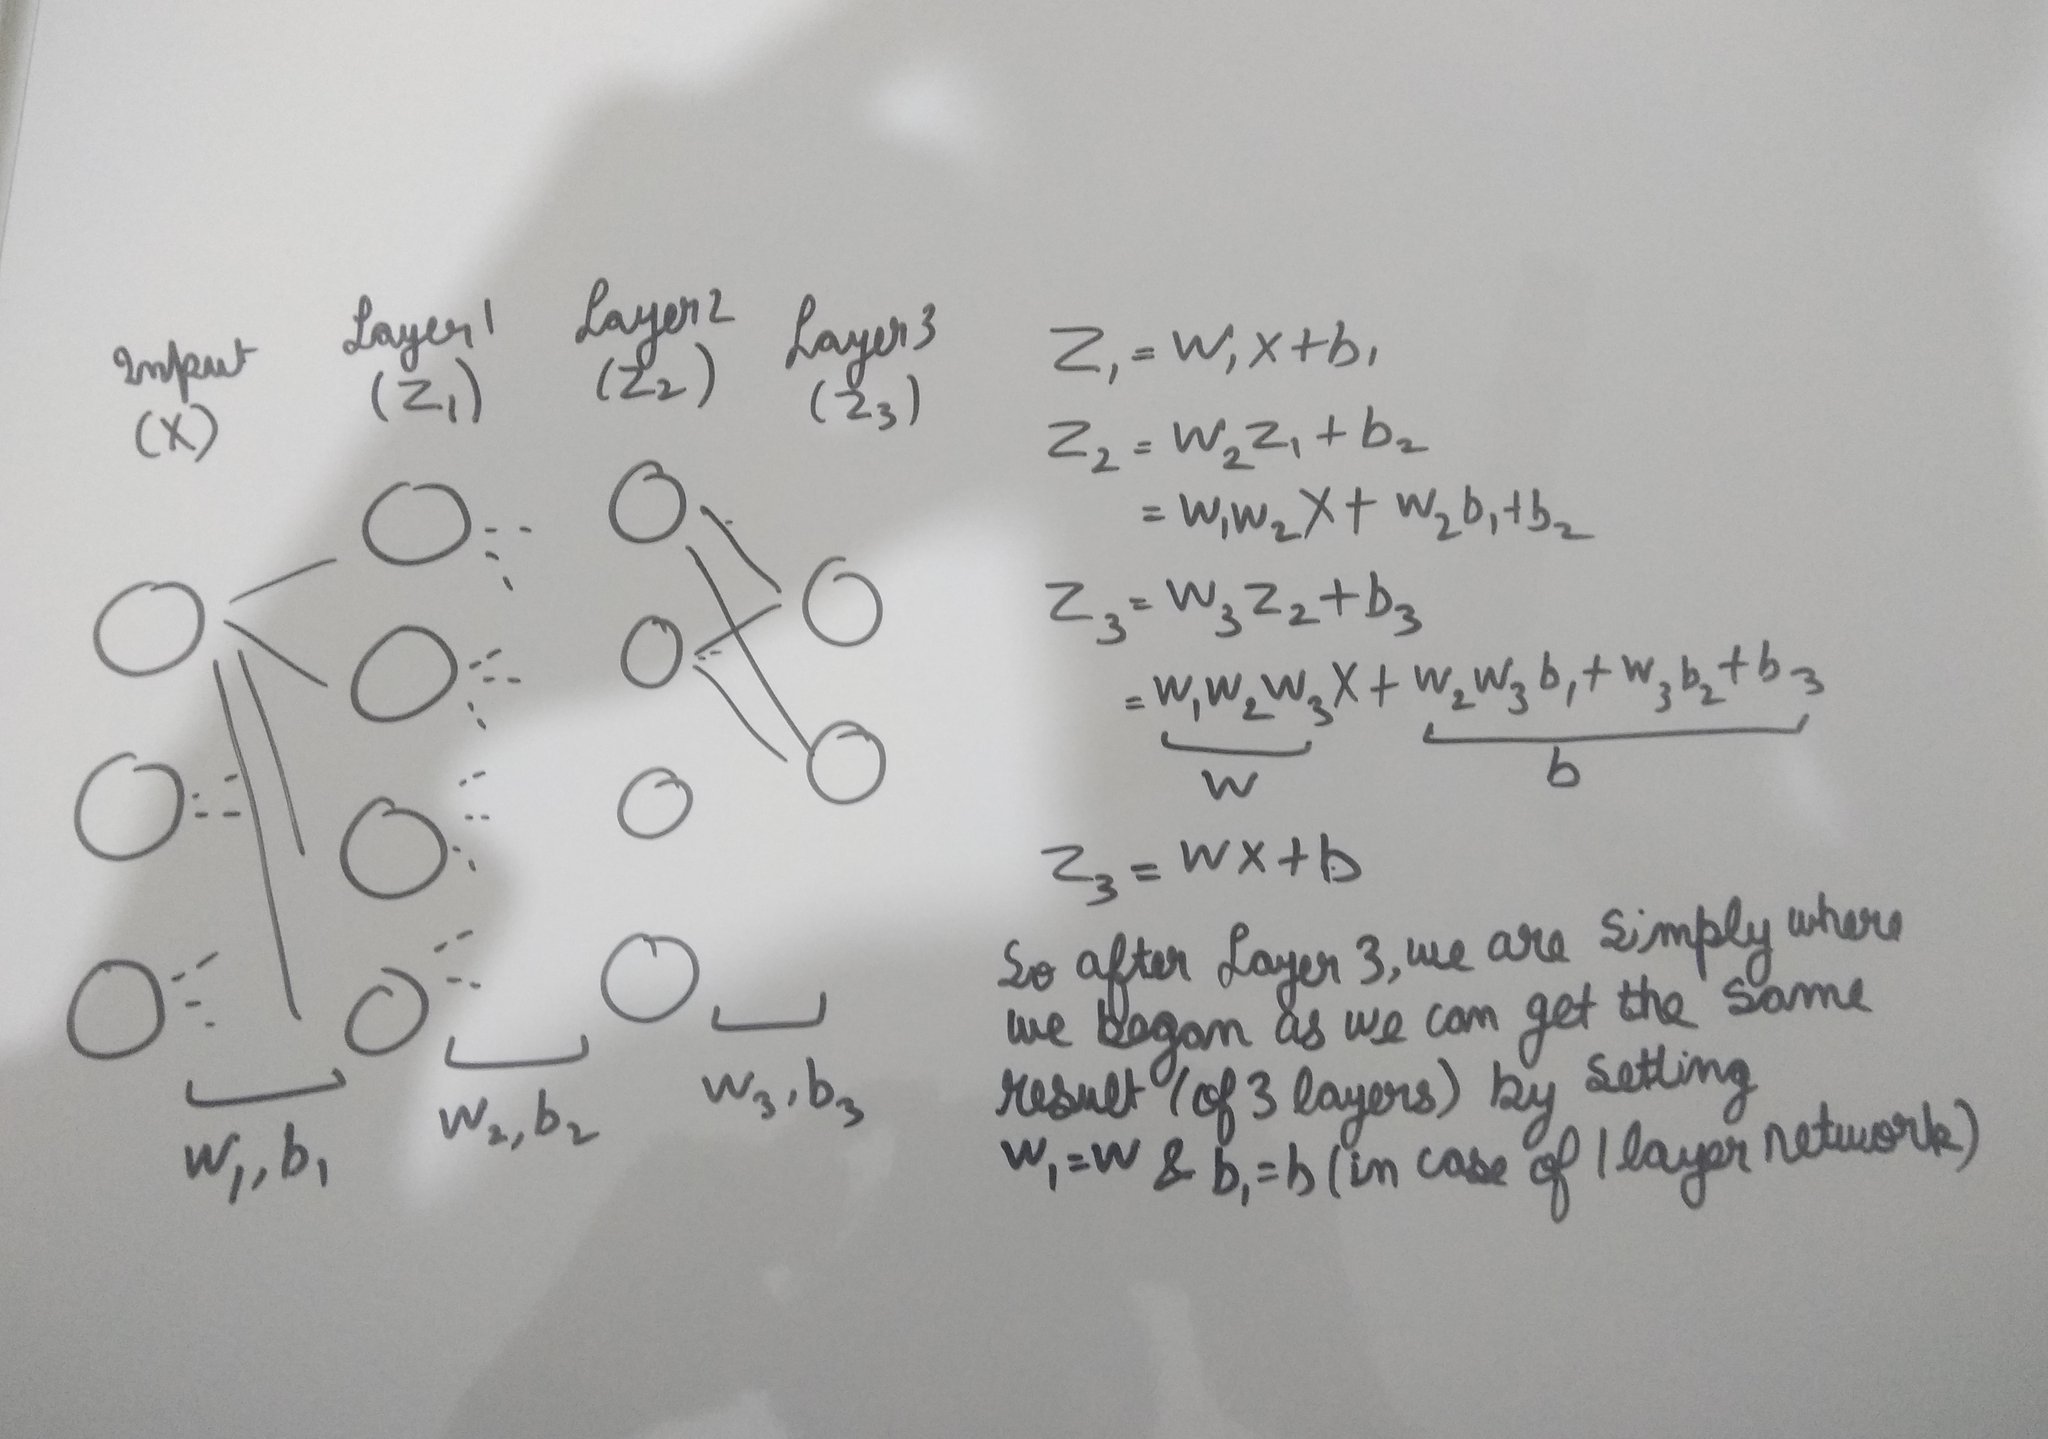 Input
(X)
Layer 1
(Z₁)
Layer 2
(Z₂)
Layer 3
(Z₃)
W₁, b₁
W₂, b₂
W₃, b₃
Z₁ = W₁X+b₁
Z₂ = W₂Z₁+b₂
= W₁W₂X+ W₂b₁+b₂
Z₃ = W₃Z₂+b₃
= W₁W₂W₃X+ W₂W₃b₁+W₃b₂+b₃
W
b
Z₃ = WX+b
So after Layer 3, we are simply where
we began as we can get the same
result (of 3 layers) by setting
W₁=W & b₁=b (in case of 1 layer network)